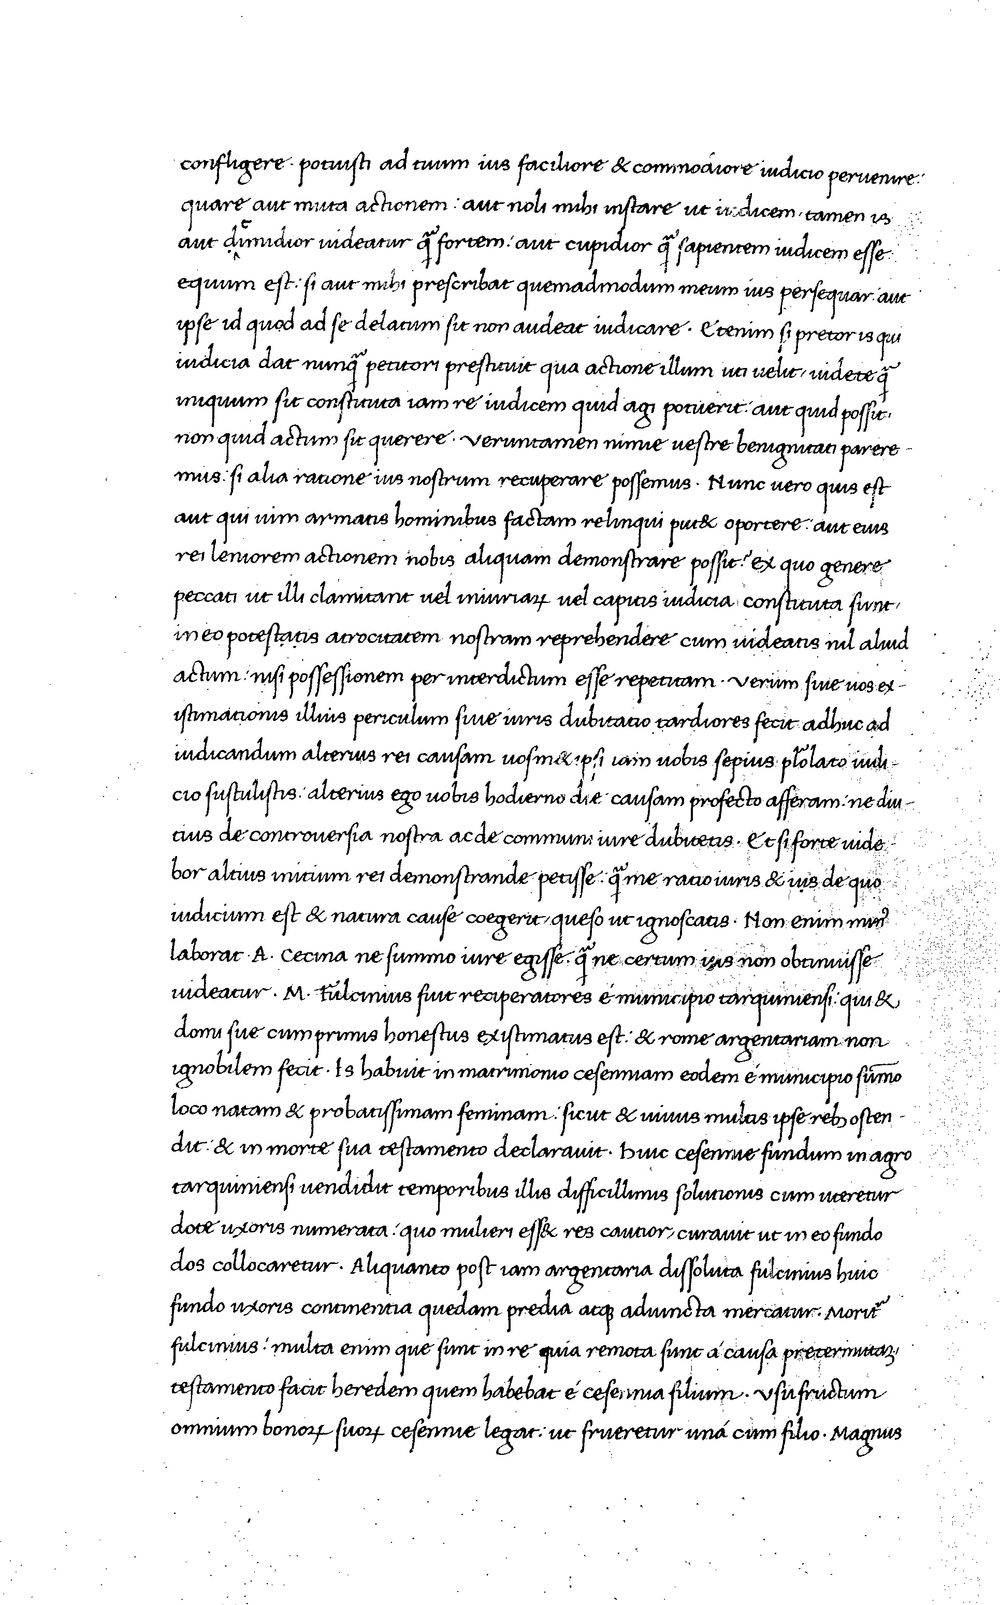 confligere · potuisti ad tuum ius faciliore & commodiore iudicio peruenire:
quare aut muta actionem: aut noli mihi instare ut iudicem, tamen is
aut timidior uideatur q̃ fortem: aut cupidior q̃ sapientem iudicem esse
equum est: si aut mihi prescribat quemadmodum meum ius persequar: aut
ipse id quod ad se delatum sit non audeat iudicare · Etenim si pretor is qui
iudicia dat nunq̃ petitori prestituit qua actione illum uti uelit, uidete q̃
iniquum sit constituta iam re iudicem quid agi potuerit: aut quid possit,
non quid actum sit querere · Veruntamen nimie uestre benignitati parere-
mus: si alia ratione ius nostrum recuperare possemus · Nunc uero quis est
aut qui uim armatis hominibus factam relinqui put& oportere: aut eius
rei leniorem actionem nobis aliquam demonstrare possit? Ex quo genere
peccati ut illi clamitant uel iniuriaꝝ uel capitis iudicia constituta sunt,
in eo potestatis atrocitatem nostram reprehendere cum uideatis nil aliud
actum: nisi possessionem per interdictum esse repetitam · Verum siue uos ex-
istimationis illius periculum siue iuris dubitatio tardiores fecit adhuc ad
iudicandum alterius rei causam uosm& ipsi iam uobis sepius p̃lolato iudi-
cio sustulistis: alterius ego uobis hodierno die causam profecto afferam: ne diu-
tius de controuersia nostra ac de communi iure dubitetis · Et si forte uide
bor altius initium rei demonstrande petisse: q̃ me ratio iuris & ius de quo
iudicium est & natura cause coegerit, queso ut ignoscatis · Non enim min᾽
laborat · A · Cecina ne summo iure egisse: q̃ ne certum ius non obtinuisse
uideatur · M · Fulcinius fuit reciperatores é municipio tarquiniensi: qui &
domi sue cum primis honestus existimatus est: & rome argentariam non
ignobilem fecit · Is habuit in matrimonio cesenniam eodem é municipio sũmo
loco natam & probatissimam feminam: sicut & uiuus multis ipse reb; osten-
dit: & in morte sua testamento declarauit · Huic cesennie fundum in agro
tarquiniensi uendidit temporibus illis difficillimis solutionis cum uteretur
dote uxoris numerata: quo mulieri ess& res cautior, curauit ut in eo fundo
dos collocaretur · Aliquanto post iam argentaria dissoluta fulcinius huic
fundo uxoris continentia quedam predia atq; adiuncta mercatur · Morit᾽
fulcinius: multa enim que sunt in re quia remota sunt á causa pretermittã,
testamento facit heredem quem habebat é cesennia filium · Vsufructum
omnium bonoꝝ suoꝝ cesennie legat: ut frueretur uná cum filio · Magnus